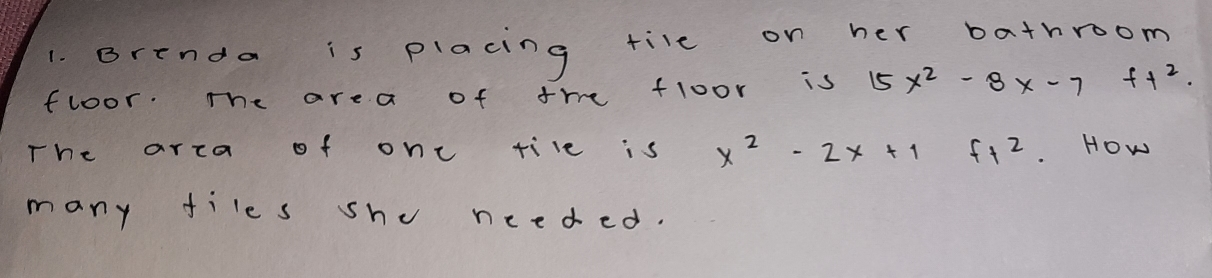 1. Brenda is placing tile on her bathroom
floor. The area of the floor is 15x² - 8x - 7 ft².
The area of one tile is x² - 2x + 1 ft². How
many tiles she needed.